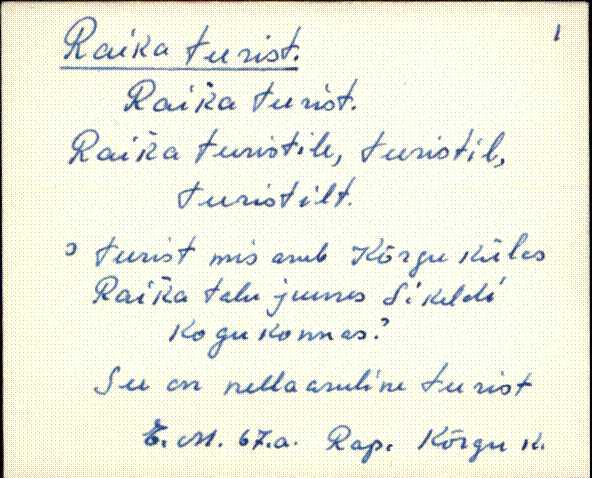 1
Raika turist.
Raik̆a turist.
Raik̆a turistile, turistil,
turistilt.
turist mis asub Kõrgu külas
Raik̆a talu juures Sikeldi
kogukonnas?
See on nellaasuline turist
E. M. 67.a. Rap. Kõrgu k.